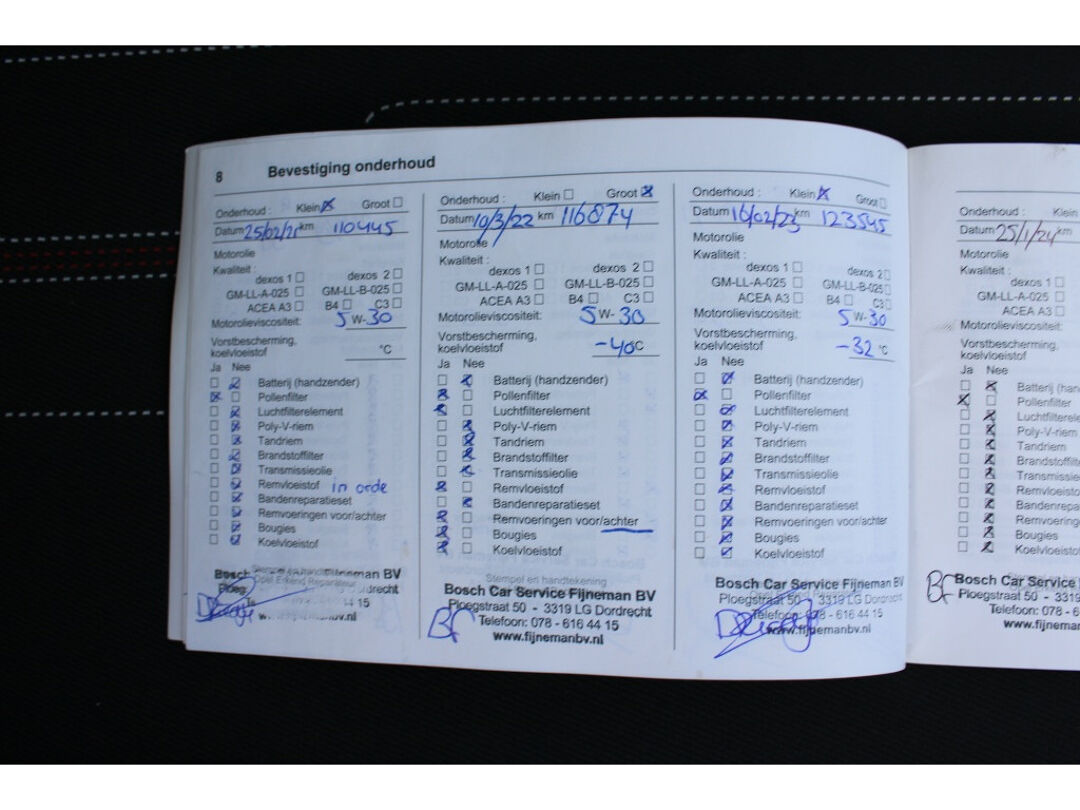 8 Bevestiging onderhoud
Onderhoud : Klein Groot
Datum 25/02/21 km 110445
Motorolie
Kwaliteit :
dexos 1 dexos 2
GM-LL-A-025 GM-LL-B-025
ACEA A3 B4 C3
Motorolieviscositeit: 5 W- 30
Vorstbescherming,
koelvloeistof °C
Ja Nee
Batterij (handzender)
Pollenfilter
Luchtfilterelement
Poly-V-riem
Tandriem
Brandstoffilter
Transmissieolie
Remvloeistof in orde
Bandenreparatieset
Remvoeringen voor/achter
Bougies
Koelvloeistof
Stempel en handtekening
Opel Erkend Reparateur
Bosch Fijneman BV
Ploeg drecht
Te 44 15
w nemanbv.nl
Onderhoud : Klein Groot
Datum 10/3/22 km 116874
Motorolie
Kwaliteit :
dexos 1 dexos 2
GM-LL-A-025 GM-LL-B-025
ACEA A3 B4 C3
Motorolieviscositeit: 5 W- 30
Vorstbescherming,
koelvloeistof -40°C
Ja Nee
Batterij (handzender)
Pollenfilter
Luchtfilterelement
Poly-V-riem
Tandriem
Brandstoffilter
Transmissieolie
Remvloeistof
Bandenreparatieset
Remvoeringen voor/achter
Bougies
Koelvloeistof
Stempel en handtekening
Bosch Car Service Fijneman BV
Ploegstraat 50 - 3319 LG Dordrecht
Telefoon: 078 - 616 44 15
www.fijnemanbv.nl
Onderhoud : Klein Groot
Datum 16/02/23 km 123545
Motorolie
Kwaliteit :
dexos 1 dexos 2
GM-LL-A-025 GM-LL-B-025
ACEA A3 B4 C3
Motorolieviscositeit: 5 W- 30
Vorstbescherming,
koelvloeistof -32 °C
Ja Nee
Batterij (handzender)
Pollenfilter
Luchtfilterelement
Poly-V-riem
Tandriem
Brandstoffilter
Transmissieolie
Remvloeistof
Bandenreparatieset
Remvoeringen voor/achter
Bougies
Koelvloeistof
Bosch Car Service Fijneman BV
Ploegstraat 50 - 3319 LG Dordrecht
Telefoon: 078 - 616 44 15
www.fijnemanbv.nl
Onderhoud : Klein
Datum 25/1/24 km
Motorolie
Kwaliteit :
dexos 1
GM-LL-A-025
ACEA A3
Motorolieviscositeit:
Vorstbescherming,
koelvloeistof
Ja Nee
Batterij (han
Pollenfilter
Luchtfiltere
Poly-V-riem
Tandriem
Brandstoffi
Transmissi
Remvloeist
Bandenrepa
Remvoering
Bougies
Koelvloeist
Bosch Car Service
Ploegstraat 50 - 331
Telefoon: 078 - 6
www.fijneman